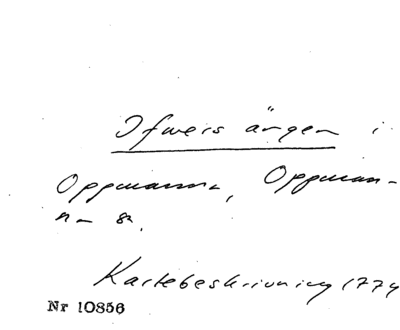 Ifweis ängen i
Oppmanna, Oppman-
na sn.
Kartebeskrivning 1774
Nr 10856